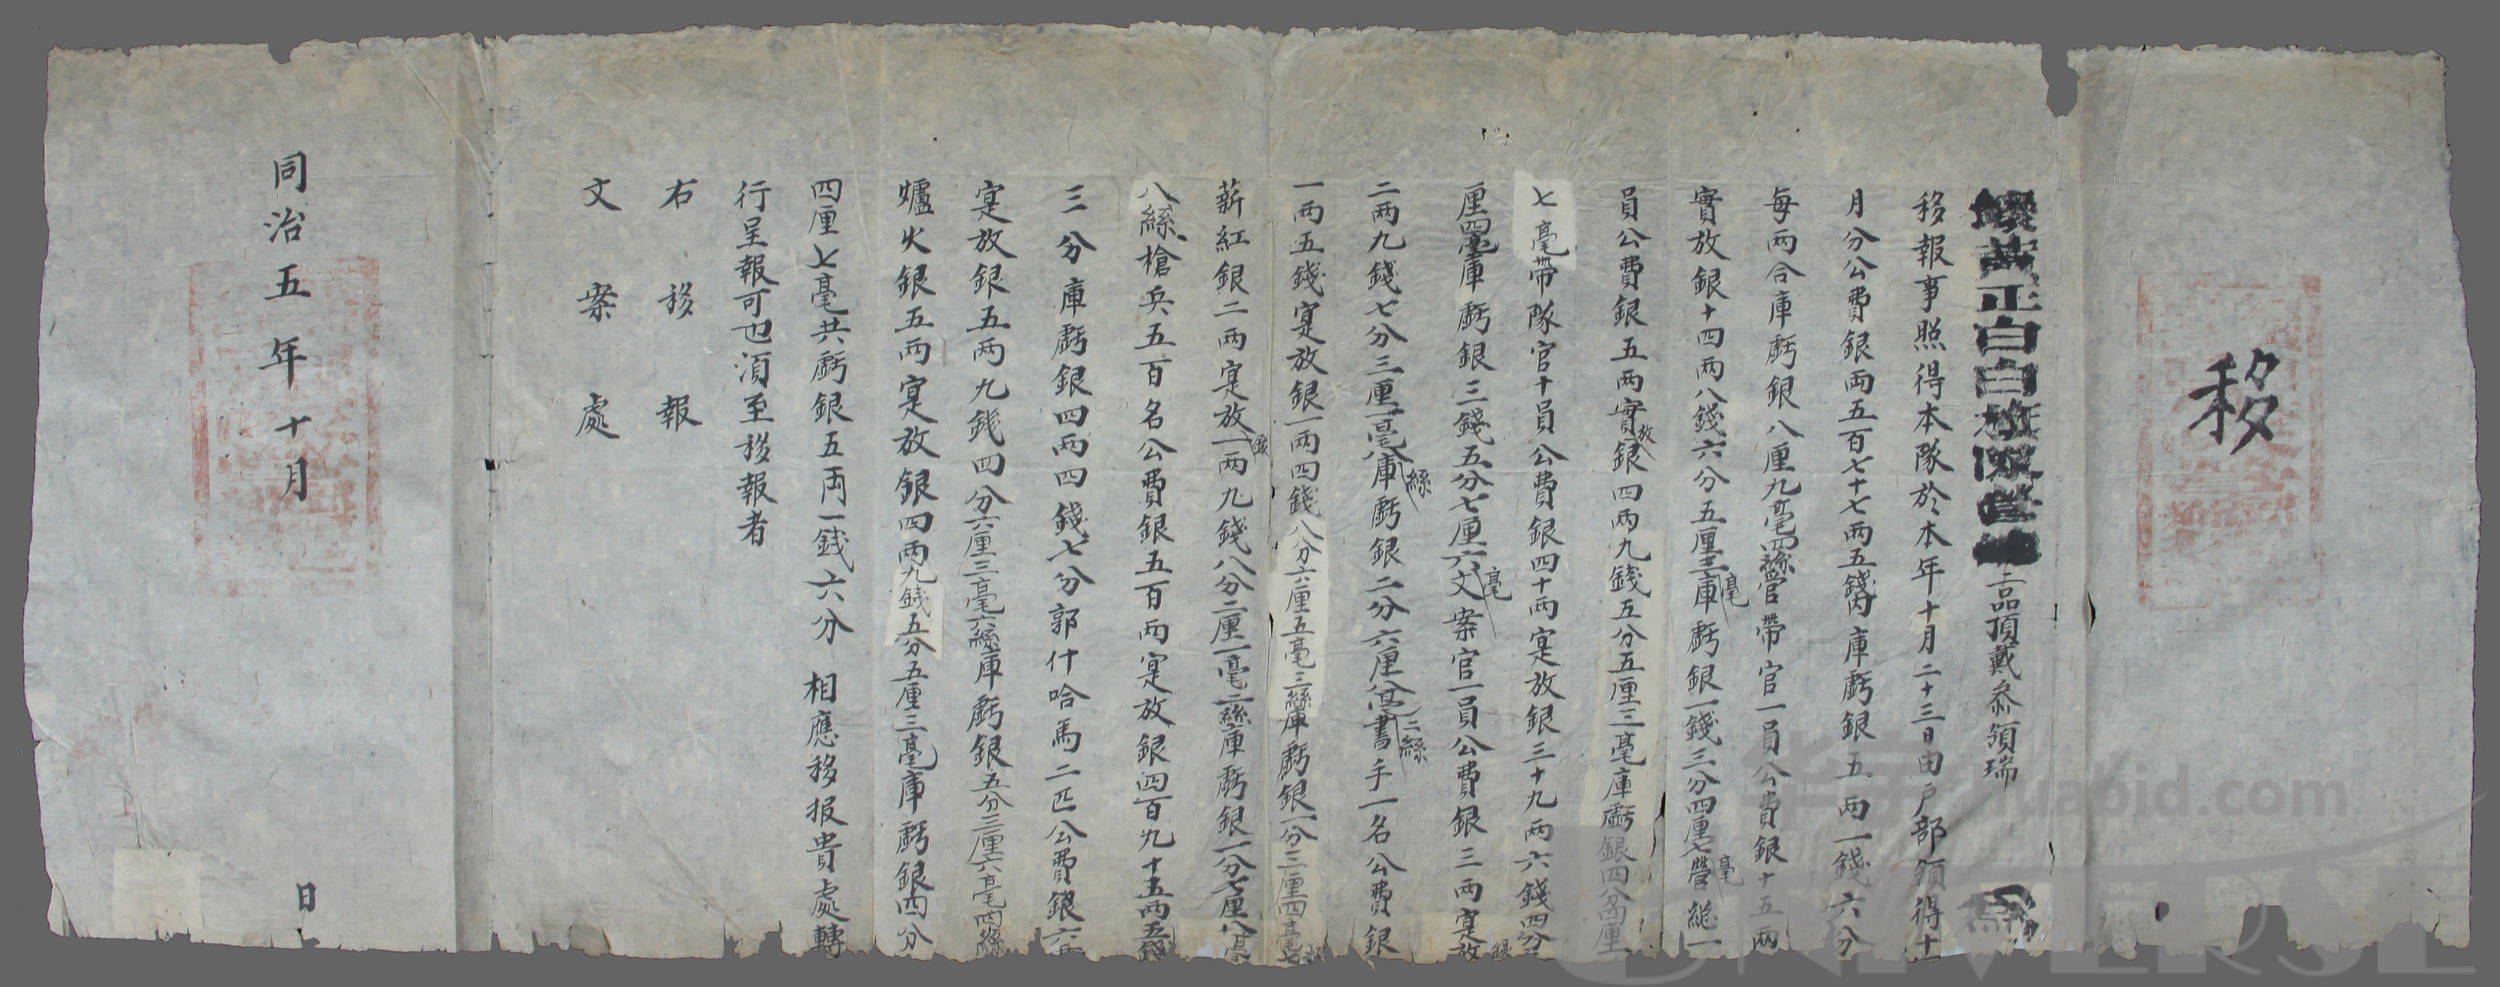 移
鑲黃正白白旗漢營 三品頂戴叅領瑞 為
移報事照得本隊於本年十月二十三日由户部領得十
月分公費銀両五百七十七両五錢内庫虧銀五両一錢六分
每両合庫虧銀八厘九毫四絲管帶官一員公費銀十五両
實放銀十四両八錢六分五厘三毫庫虧銀一錢三分四厘七毫營総一
員公費銀五両實放銀四両九錢五分五厘三毫庫虧銀四分四厘
七毫帶隊官十員公費銀四十両寔放銀三十九両六錢四分
厘四毫庫虧銀三錢五分七厘六毫文案官一員公費銀三両寔放銀
二両九錢七分三厘一毫八絲庫虧銀二分六厘八毫二絲書手一名公費銀
一両五錢寔放銀一両四錢八分六厘五毫三絲庫虧銀一分三厘四毫七絲
薪紅銀二両寔放銀一両九錢八分二厘一毫二絲庫虧銀一分七厘八毫
八絲槍兵五百名公費銀五百両寔放銀四百九十五両五錢
三分庫虧銀四両四錢七分郭什哈馬二匹公費銀六両
寔放銀五両九錢四分六厘三毫六絲庫虧銀五分三厘六毫四絲
爐火銀五両寔放銀四両九錢五分五厘三毫庫虧銀四分
四厘七毫共虧銀五両一錢六分 相應移报貴處轉
行呈報可也須至移報者
右移報
文案處
同治五年十月 日
华宇 huabid.com
UNIVERSE